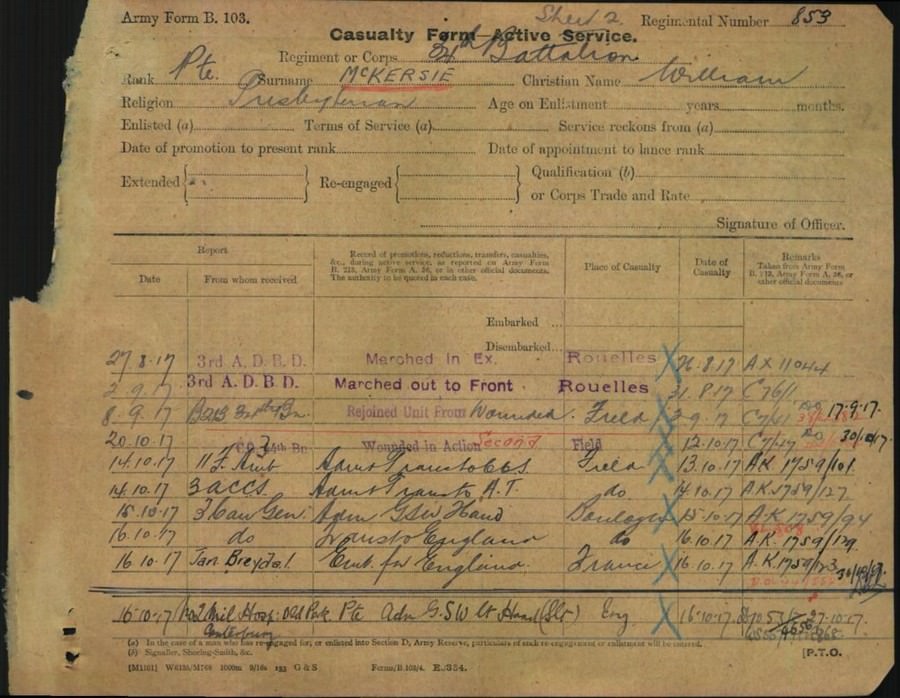 Army Form B. 103.
Sheet 2.
Regimental Number 853
Casualty Form—Active Service.
Regiment or Corps 34th Battalion
Rank Pte. Surname McKERSIE Christian Name William
Religion Presbyterian Age on Enlistment years months.
Enlisted (a) Terms of Service (a) Service reckons from (a)
Date of promotion to present rank Date of appointment to lance rank
Extended Re-engaged Qualification (b)
or Corps Trade and Rate
Signature of Officer.
Report
Date From whom received
Record of promotions, reductions, transfers, casualties, &c., during active service, as reported on Army Form B. 213, Army Form A. 36, or in other official documents. The authority to be quoted in each case.
Place of Casualty
Date of Casualty
Remarks
Taken from Army Form B. 213, Army Form A. 36, or other official documents
Embarked ...
Disembarked...
27.8.17 3rd A. D. B. D. Marched in Ex. Rouelles 26.8.17 AX 11044
2.9.17 3rd A. D. B. D. Marched out to Front Rouelles 31.8.17 C76/1
8.9.17 Bn. Rejoined Unit From Wounded. Field 2.9.17 DO 17.9.17.
20.10.17 CO 34th Bn. Wounded in Action Second Field 12.10.17 DO 30/10/17.
14.10.17 11 F. Amb Adm & Trans to CCS Field 13.10.17 A.K. 1759/101
14.10.17 3 ACCS. Adm & Trans to A.T. do 14.10.17 A.K. 1759/127
15.10.17 3 Can Gen. Adm GSW Hand Boulogne 15.10.17 A.K 1759/94
16.10.17 do Trans to England do 16.10.17 A.K. 1759/129
16.10.17 Jan Breydal Emb. for England. France 16.10.17 A.K. 1759/123
16.10.17 No 2 Mil Hosp: Old Park Canterbury Pte Adm G.S.W Lt Hand (Slt) Eng 16.10.17 27.10.17.
(a) In the case of a man who has re-engaged for, or enlisted into Section D, Army Reserve, particulars of such re-engagement or enlistment will be entered.
(b) Signaller, Shoeing-Smith, &c.
[P.T.O.
9/16s G & S Forms/B.103/4. E./354.